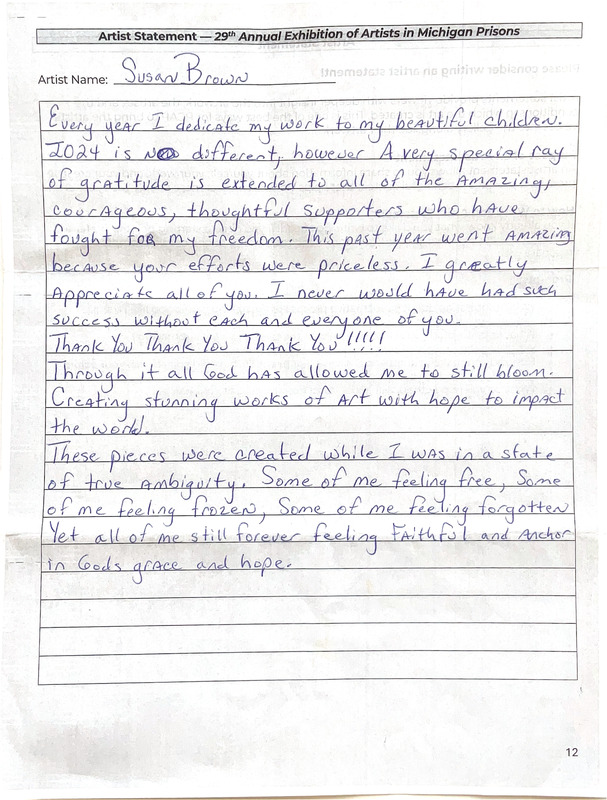 Artist Statement — 29th Annual Exhibition of Artists in Michigan Prisons
Artist Name: Susan Brown
Every year I dedicate my work to my beautiful children.
2024 is no different, however A very special ray
of gratitude is extended to all of the Amazing,
courageous, thoughtful supporters who have
fought for my freedom. This past year went Amazing
because your efforts were priceless. I greatly
Appreciate all of you. I never would have had such
success without each and everyone of you.
Thank You Thank You Thank You!!!!!
Through it all God has allowed me to still bloom.
Creating stunning works of Art with hope to impact
the world.
These pieces were created while I was in a state
of true Ambiguity. Some of me feeling free, Some
of me feeling frozen, Some of me feeling forgotten
Yet all of me still forever feeling Faithful and Anchor
in Gods grace and hope.
12